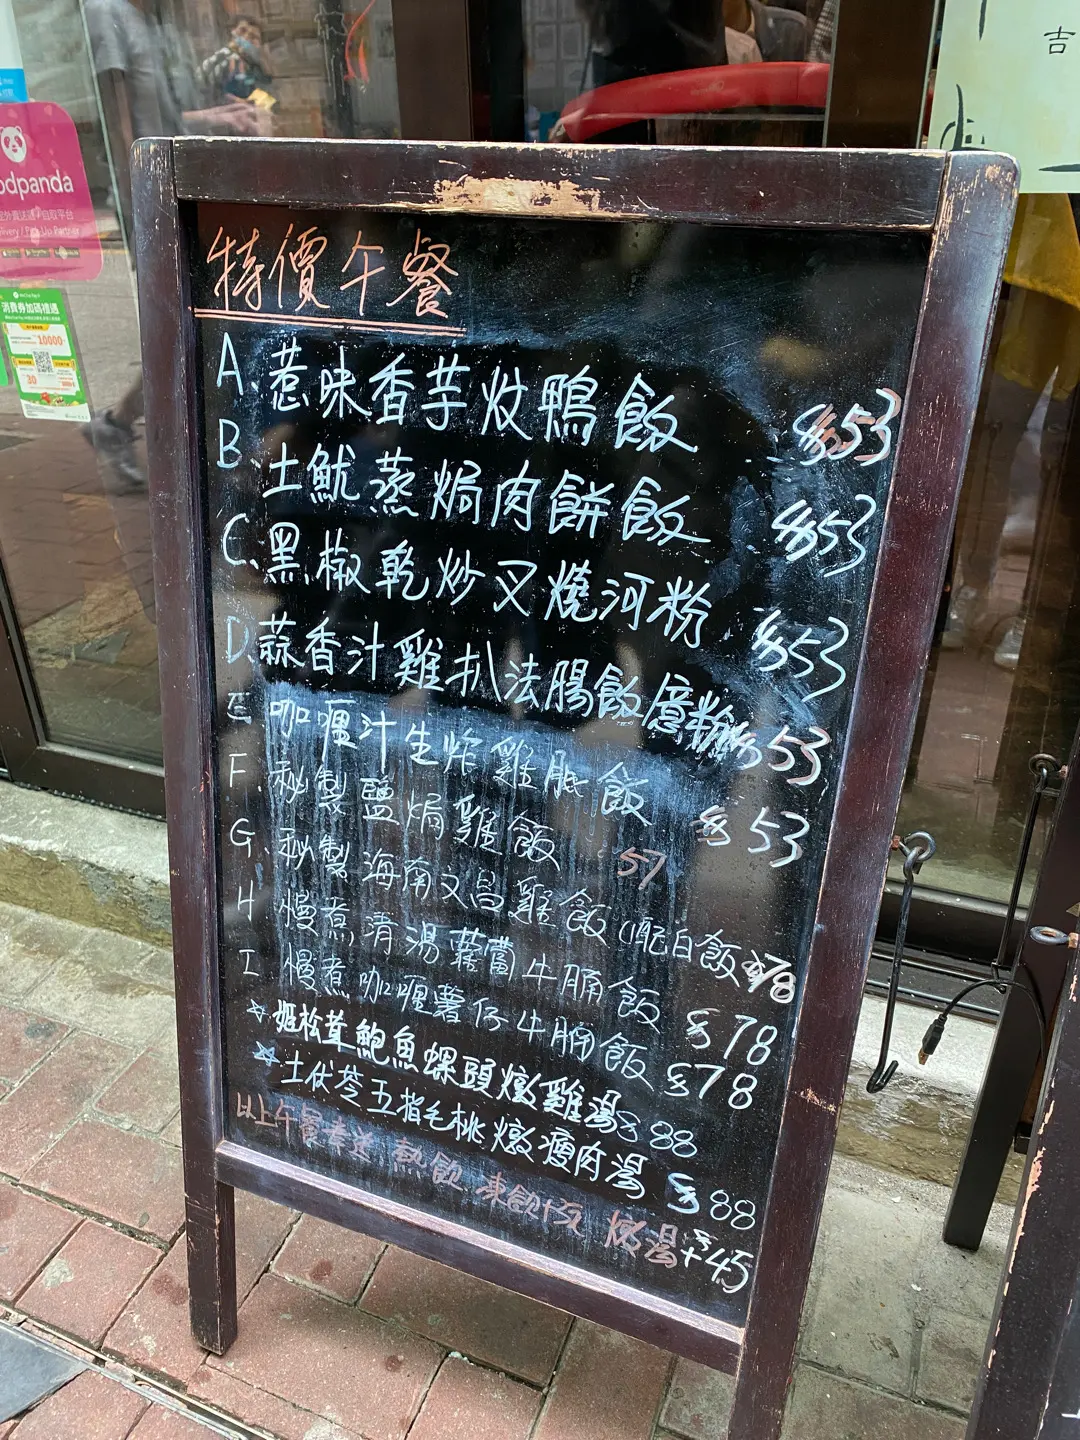 吉
odpanda
消費券加碼禮遇
10000
30
特價午餐
A. 惹味香芋炆鴨飯 $53
B. 土魷蒸焗肉餅飯 $53
C. 黑椒乾炒叉燒河粉 $53
D. 蒜香汁雞扒法腸飯 意粉 $53
E 咖喱汁生炸雞髀飯 $53
F. 秘製鹽焗雞飯 57
G. 秘製海南文昌雞飯(配白飯 $78
H 慢煮清湯蘿蔔牛腩飯 $78
I 慢煮咖喱薯仔牛腩飯 $78
☆ 姬松茸鮑魚螺頭燉雞湯 $88
☆ 土伏苓五指毛桃燉瘦肉湯 $88
以上午餐奉送 熱飲 凍飲+3元 燉湯+$45